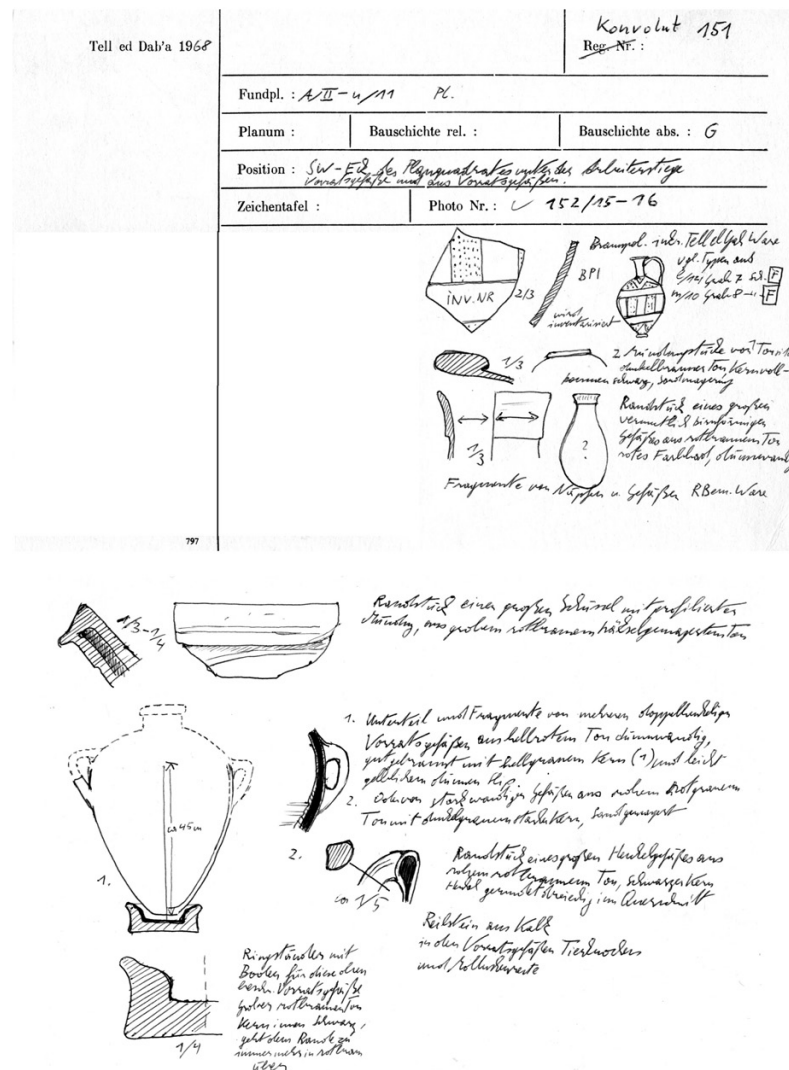 Konvolut 151
Tell ed Dab'a 1968
Reg. Nr. :
Fundpl. : A/II-n/11 Pl.
Planum : Bauschichte rel. : Bauschichte abs. : G
Position : SW-Eck des Planquadrates unter der Arbeiterstiege
Vorratsgefäße und aus Vorratsgefäßen.
Zeichentafel : Photo Nr. : 152/15-16
Tell el Jah. Ware
vgl. Typen aus
BPl
Grab 7 F
INV.NR 2/3
m/10 Grab 8 F
wird
inventarisiert
1/3
2 Mundsaumstücke von
dunkelbrauner Ton Kern voll-
kommen schwarz, Sandmagerung
Randstück eines großen
vermutlich birnförmigen
Gefäßes aus rotbraunem Ton
?
rotes Farbbad, dünnwandig
1/3
Fragmente von Näpfen u. Gefäßen Ware
797
Randstück einer großen Schüssel mit profilierter
Mündung, aus grobem rotbraunem häckselgemagertem Ton
1/3-1/4
1. Unterteil und Fragmente von mehreren doppelhenkeligen
Vorratsgefäßen aus hellrotem Ton dünnwandig,
gut gebrannt mit hellgrauem Kern (1) und leicht
gelblichem dünnen
2. Oder von starkwandigen Gefäßen aus rohem
Ton mit dunkelgrauem starken Kern, Sandgemagert
ca 45 cm
1.
2.
ca 1/5
Randstück eines großen Henkelgefäßes aus
rohem rotbraunem Ton, schwarzer Kern
Henkel gerundet dreieckig im Querschnitt
Reibstein aus Kalk
in den Vorratsgefäßen Tierknochen
und
Ringständer mit
Boden für diese oben
Vorratsgefäße
grober rotbrauner Ton
Kern innen schwarz,
geht dem Rande zu
immer mehr in rotbraun
über
1/4